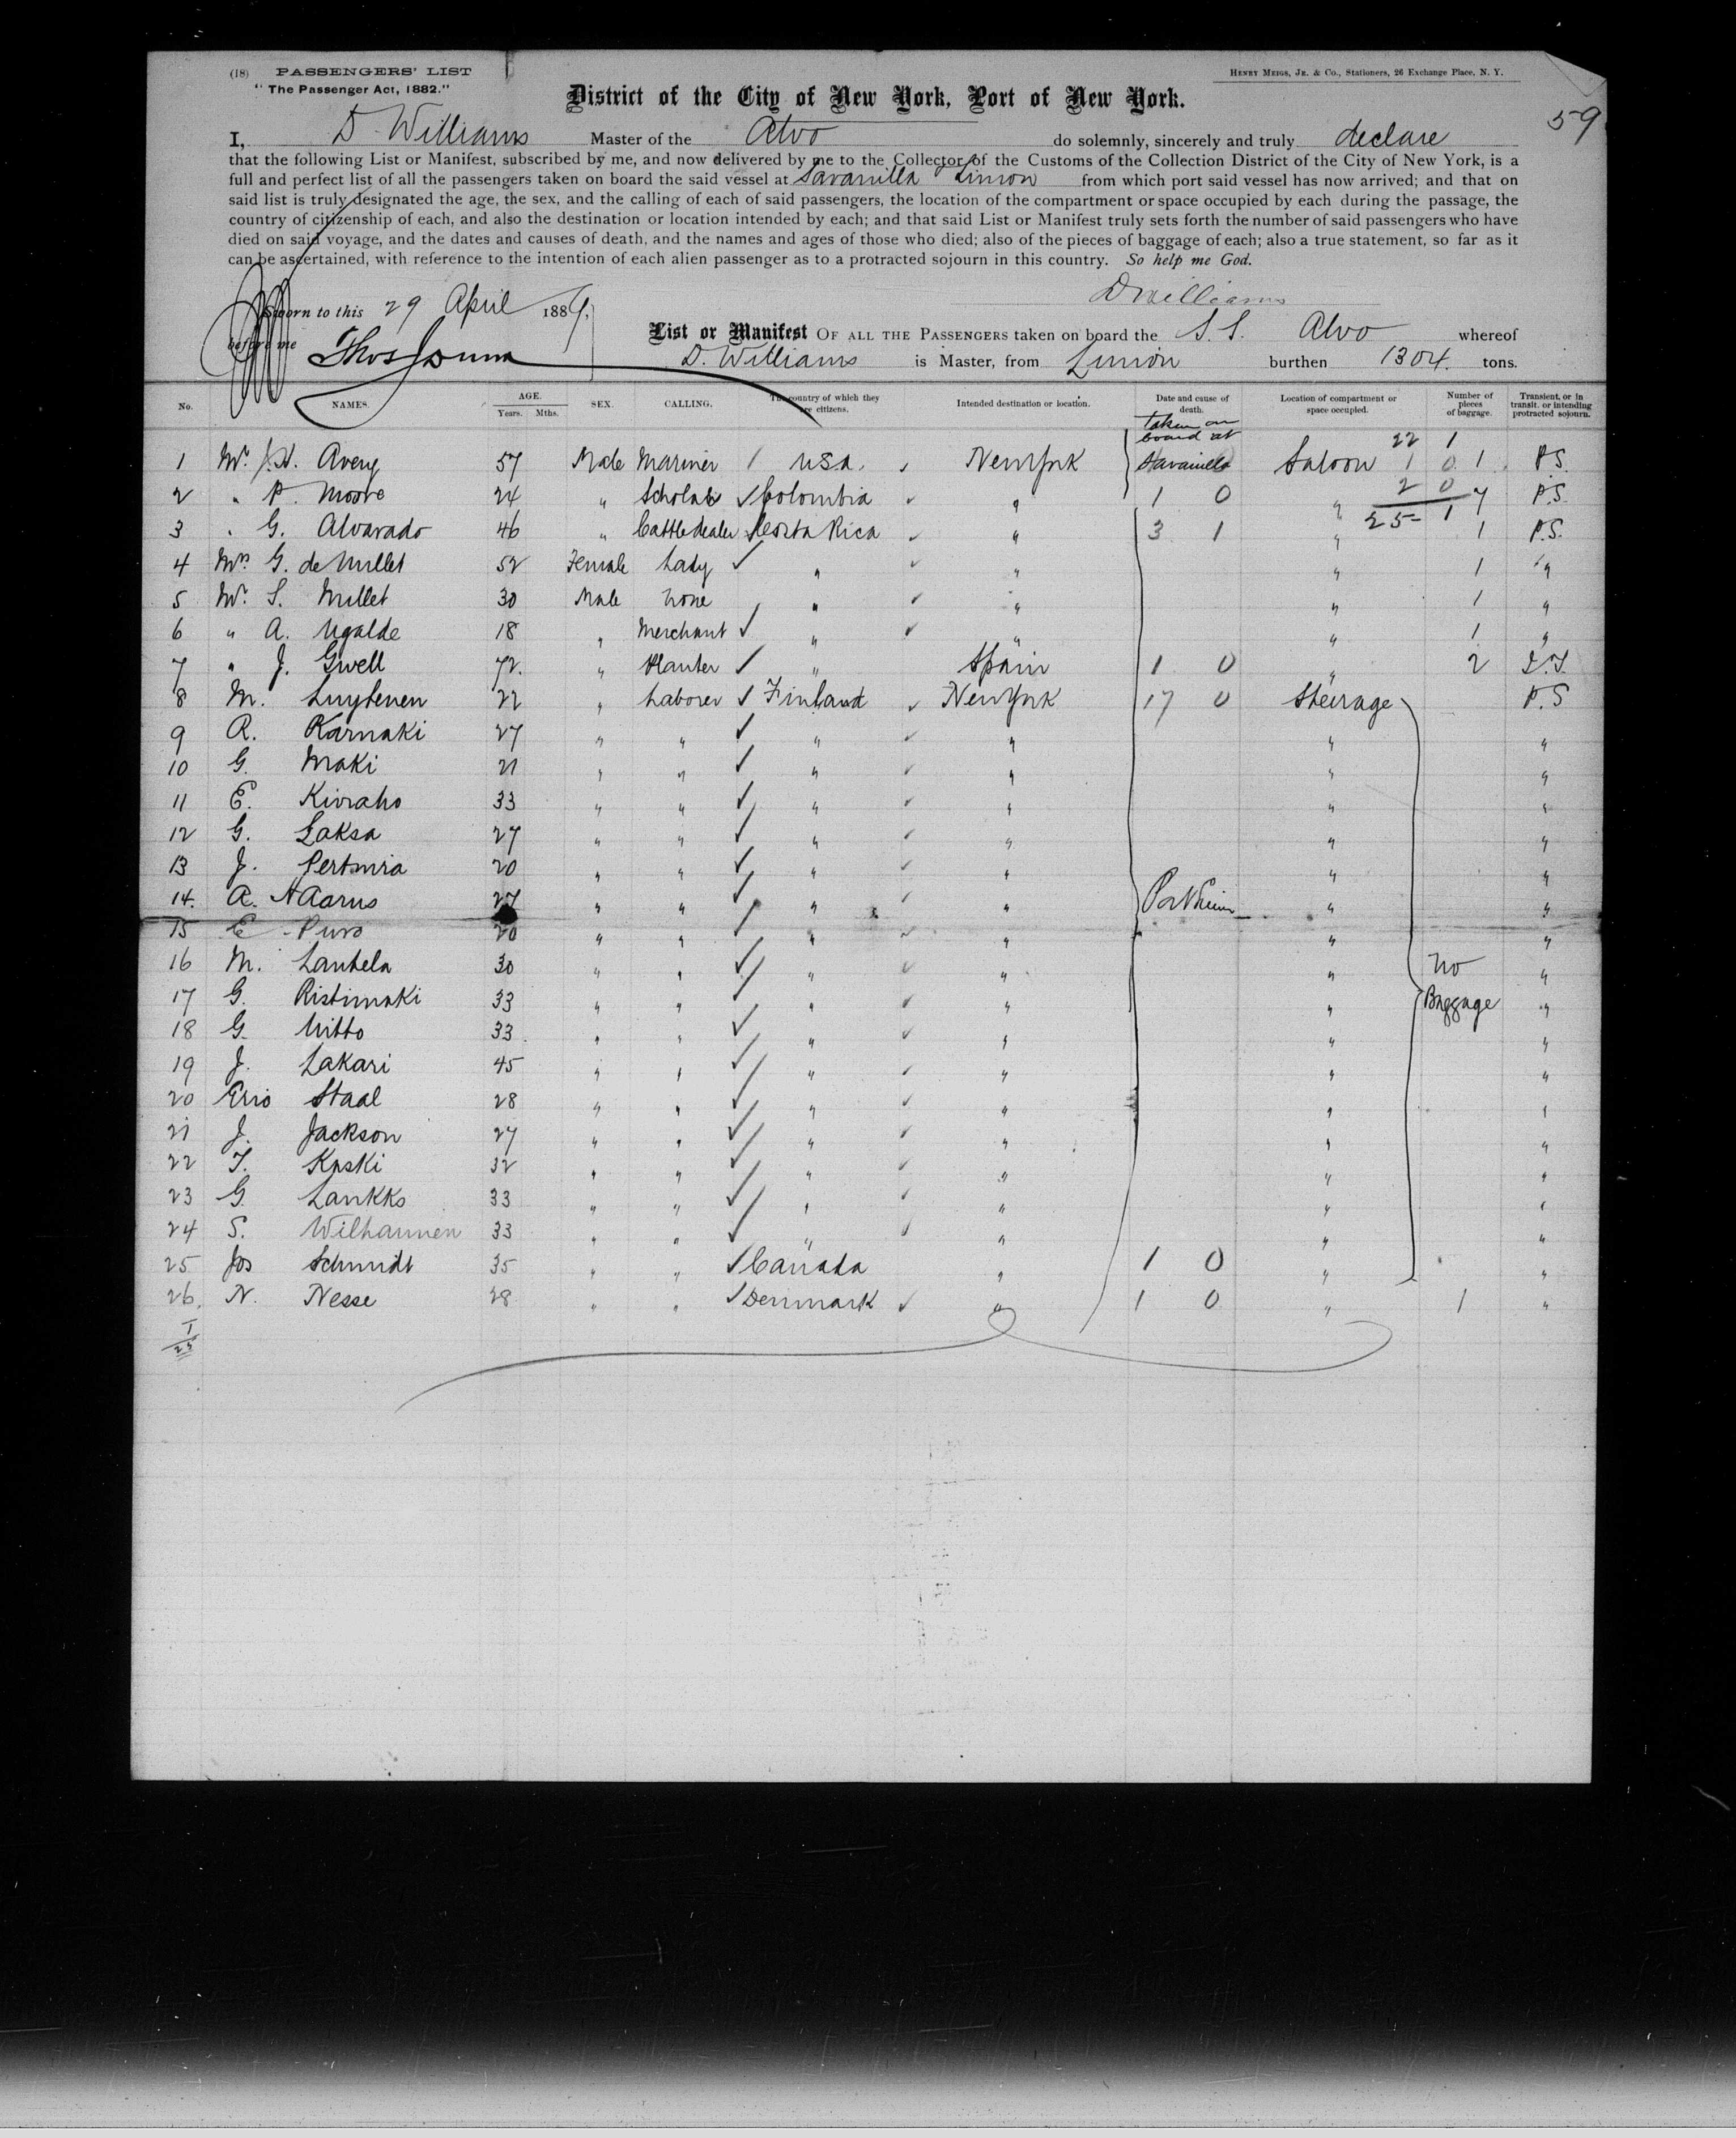 (18) PASSENGERS' LIST
HENRY MEIGS, JR. & CO., Stationers, 26 Exchange Place, N. Y.
" The Passenger Act, 1882."
District of the City of New York, Port of New York.
59
I, D. Williams Master of the Alvo do solemnly, sincerely and truly declare
that the following List or Manifest, subscribed by me, and now delivered by me to the Collector of the Customs of the Collection District of the City of New York, is a
full and perfect list of all the passengers taken on board the said vessel at Savanilla Limon from which port said vessel has now arrived; and that on
said list is truly designated the age, the sex, and the calling of each of said passengers, the location of the compartment or space occupied by each during the passage, the
country of citizenship of each, and also the destination or location intended by each; and that said List or Manifest truly sets forth the number of said passengers who have
died on said voyage, and the dates and causes of death, and the names and ages of those who died; also of the pieces of baggage of each; also a true statement, so far as it
can be ascertained, with reference to the intention of each alien passenger as to a protracted sojourn in this country. So help me God.
DWilliams
Sworn to this 29 April 1889,
before me Thos
List or Manifest OF ALL THE PASSENGERS taken on board the S.S. Alvo whereof
D. Williams is Master, from Limon burthen 1304. tons.
No. NAMES. AGE. Years. Mths. SEX. CALLING. The country of which they are citizens. Intended destination or location. Date and cause of death. Location of compartment or space occupied. Number of pieces of baggage. Transient, or in transit, or intending protracted sojourn.
taken on
board at 22 1
1 Mr. J.H. Avery 57 Male Mariner / USA. ✓ New York Savanilla Saloon 1 0 1 P.S.
2 " P. Moore 24 " Scholar ✓ Colombia ✓ " 1 0 " 2 0 7 P.S.
3 " G. Alvarado 46 " Cattledealer ✓ Costa Rica ✓ " 3 1 " 25 1 1 P.S.
4 Mrs G. de Millet 52 Female Lady ✓ " ✓ " " 1 "
5 Mr. S. Millet 30 Male None " ✓ " " 1 "
6 " A. Ugalde 18 " Merchant ✓ " ✓ " " 1 "
7 " J. Gwell 72. " Planter ✓ " Spain 1 0 " 2 I.T.
8 M. Luytenen 22 " Laborer ✓ Finland ✓ New York 17 0 Steirage P.S
9 R. Karnaki 27 " " ✓ " ✓ " " "
10 G. Maki 21 " " ✓ " ✓ " " "
11 E. Kivraho 33 " " ✓ " ✓ " " "
12 G. Laksa 27 " " ✓ " ✓ " " "
13 J. Pertmria 20 " " ✓ " ✓ " " "
14. A. Aarus 27 " " ✓ " ✓ " Port Limon " "
15 E Puro 20 " " / " ✓ " " "
16 M. Lantela 30 " " ✓ " ✓ " " No "
17 G. Ristimaki 33 " " / " ✓ " " Baggage "
18 G. Uitto 33 " " ✓ " ✓ " " "
19 J. Lakari 45 " " ✓ " ✓ " " "
20 Eric Staal 28 " " ✓ " ✓ " " "
21 J. Jackson 27 " " ✓ " ✓ " " "
22 T. Koski 32 " " ✓ " ✓ " " "
23 G. Lankks 33 " " ✓ " ✓ " " "
24 S. Wilhannen 33 " " ✓ " ✓ " " "
25 Jos Schmidt 35 " " ✓ Canada " 1 0 " "
26. N. Nesse 28 " " ✓ Denmark ✓ " 1 0 " 1 "
1
25